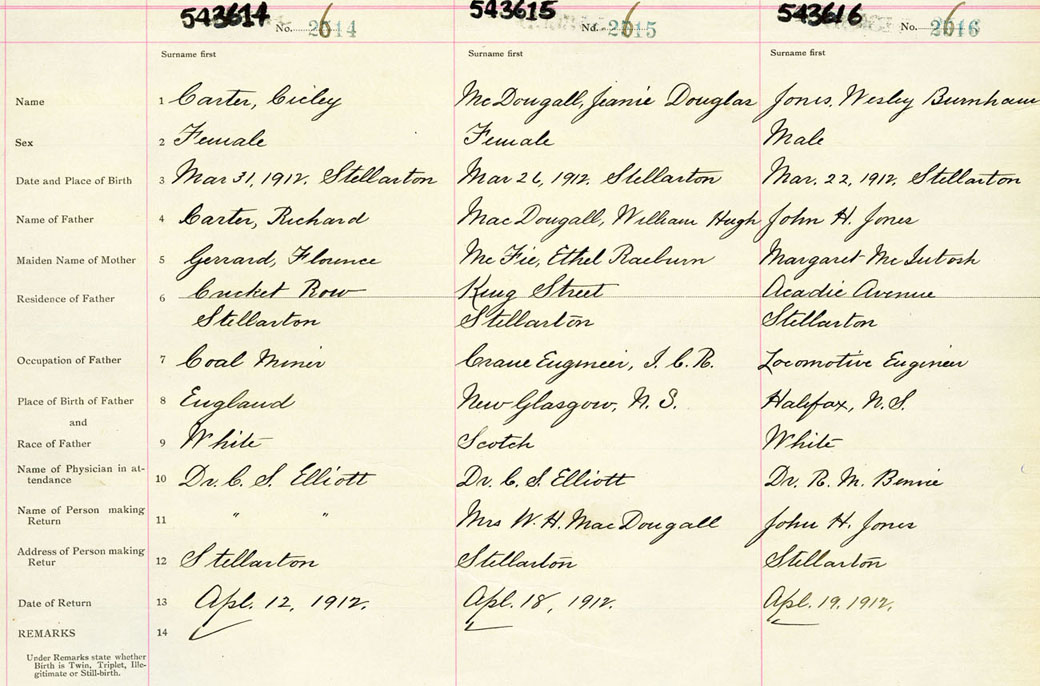 543614 No. 2614 543615 No. 2615 543616 No. 2616
Surname first Surname first Surname first
Name 1 Carter, Cicley McDougall, Jeanie Douglas Jones, Wesley Burnham
Sex 2 Female Female Male
Date and Place of Birth 3 Mar 31, 1912. Stellarton Mar 26, 1912. Stellarton Mar. 22, 1912, Stellarton
Name of Father 4 Carter, Richard MacDougall, William Hugh John H. Jones
Maiden Name of Mother 5 Gerrard, Florence McFie, Ethel Raeburn Margaret McIntosh
Residence of Father 6 Cricket Row King Street Acadia Avenue
Stellarton Stellarton Stellarton
Occupation of Father 7 Coal Miner Crane Engineer, I. C. R. Locomotive Engineer
Place of Birth of Father 8 England New Glasgow, N. S. Halifax, N. S.
and
Race of Father 9 White Scotch White
Name of Physician in at-
tendance 10 Dr. C. S. Elliott Dr. C. S. Elliott Dr. R. M. Benvie
Name of Person making
Return 11 " " Mrs W. H. MacDougall John H. Jones
Address of Person making
Retur 12 Stellarton Stellarton Stellarton
Date of Return 13 Apl. 12, 1912. Apl. 18, 1912. Apl. 19. 1912.
REMARKS 14
Under Remarks state whether
Birth is Twin, Triplet, Ille-
gitimate or Still-birth.